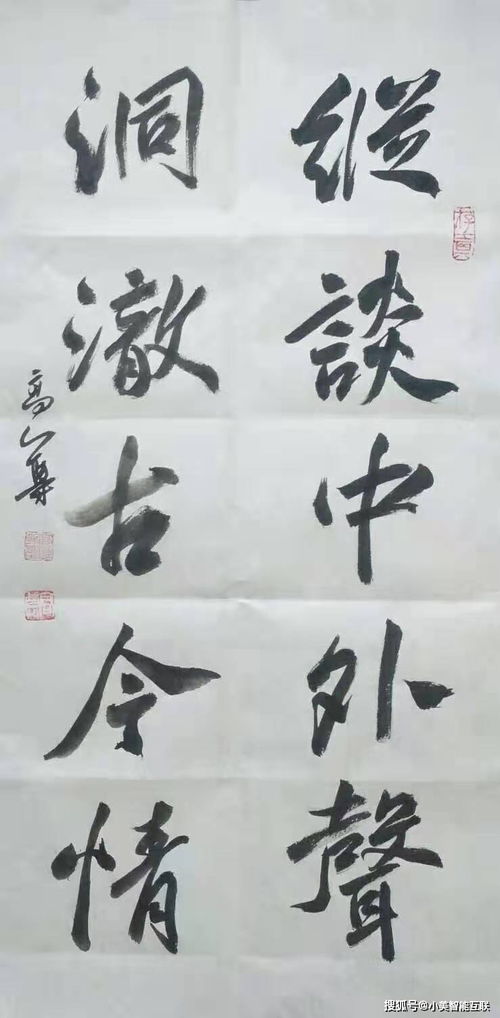 縱談中外聲
洞澈古今情
高
搜狐号@小美智能互联